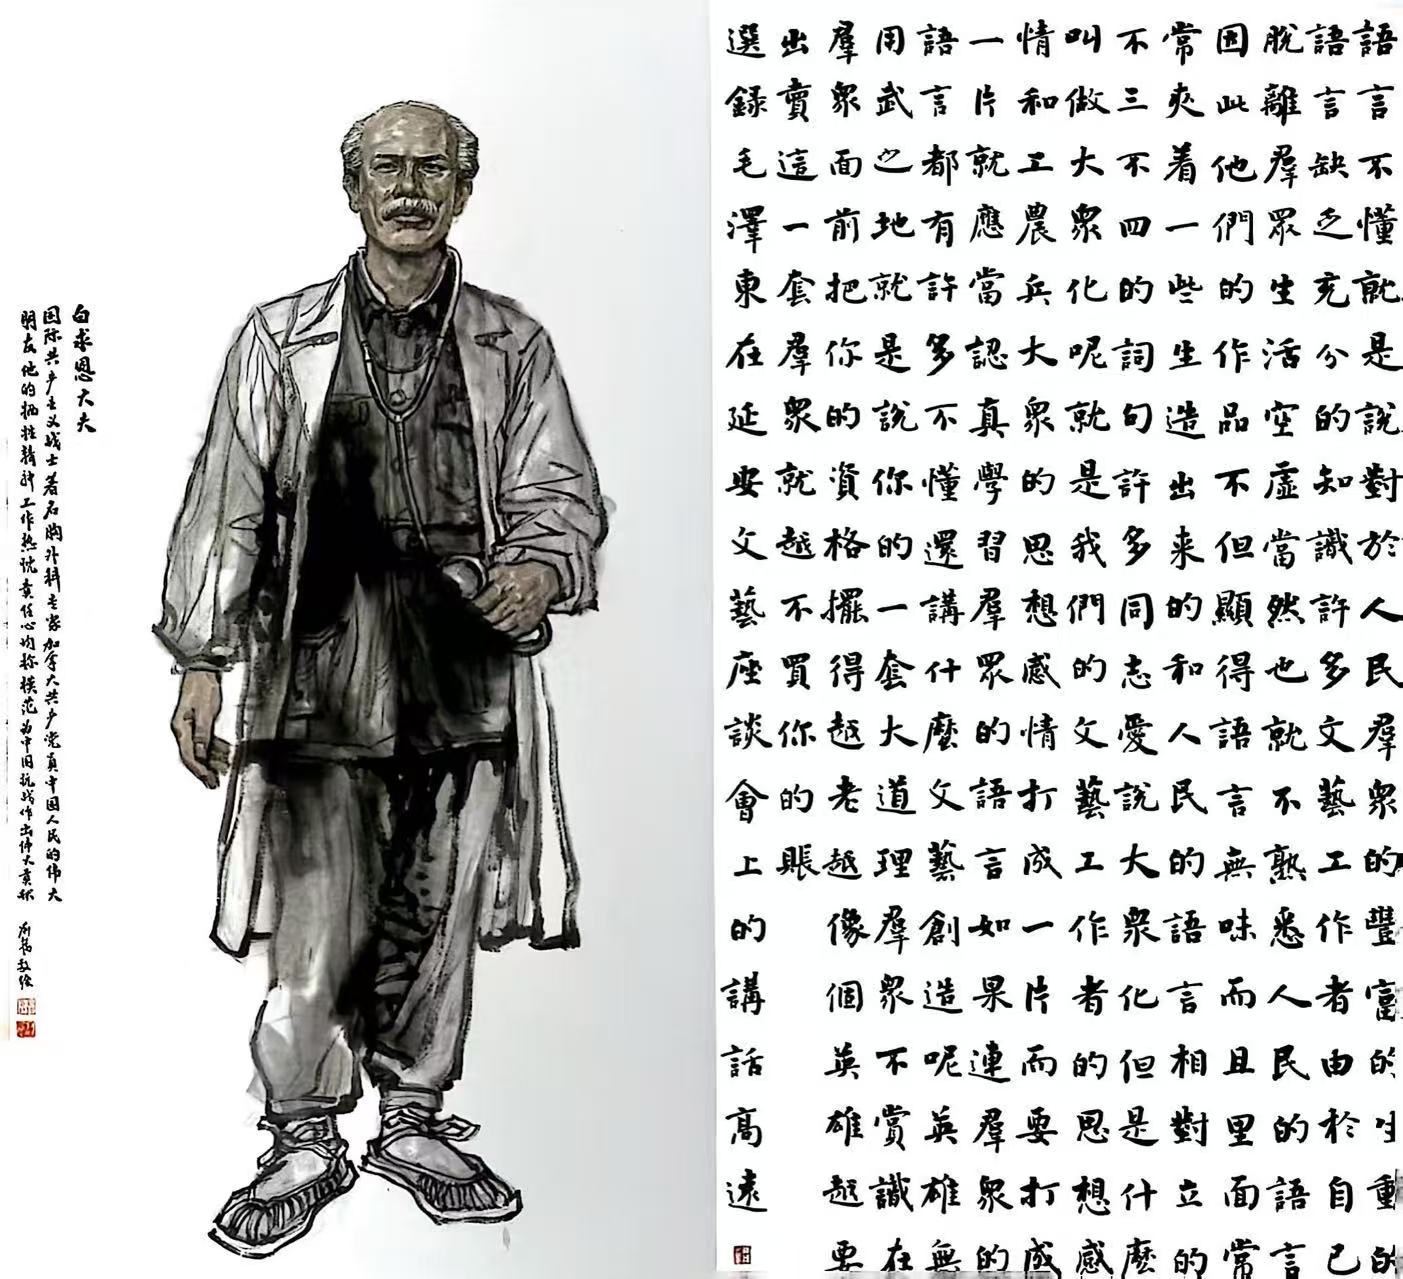 語言不懂就是說對於人民羣衆的豐富的生動的
語言缺乏充分的知識許多文藝工作者由於自己
脫離羣眾生活空虛當然也就不熟悉人民的語言
因此他們的作品不但顯得語言無味而且里面常
常夾着一些生造出来的和人民的語言相對立的
不三不四的詞句許多同志愛說大衆化但是什麼
叫做大衆化呢就是我們的文藝工作者的思想感
情和工農兵大衆的思想感情打成一片而要打成
一片就應當認真學習羣眾的語言如果連羣衆的
語言都有許多不懂還講什麼文藝創造呢英雄無
用武之地就是說你的一套大道理羣衆不賞識在
羣衆面前把你的資格擺得越老越像個英雄越要
出賣這一套羣衆就越不買你的賬
選録毛澤東在延安文藝座談會上的講話高遠
白求恩大夫
国际共产主义战士著名胸外科专家加拿大共产党员中国人民的伟大
朋友他的牺牲精神工作热忱责任心均称模范为中国抗战作出伟大贡献